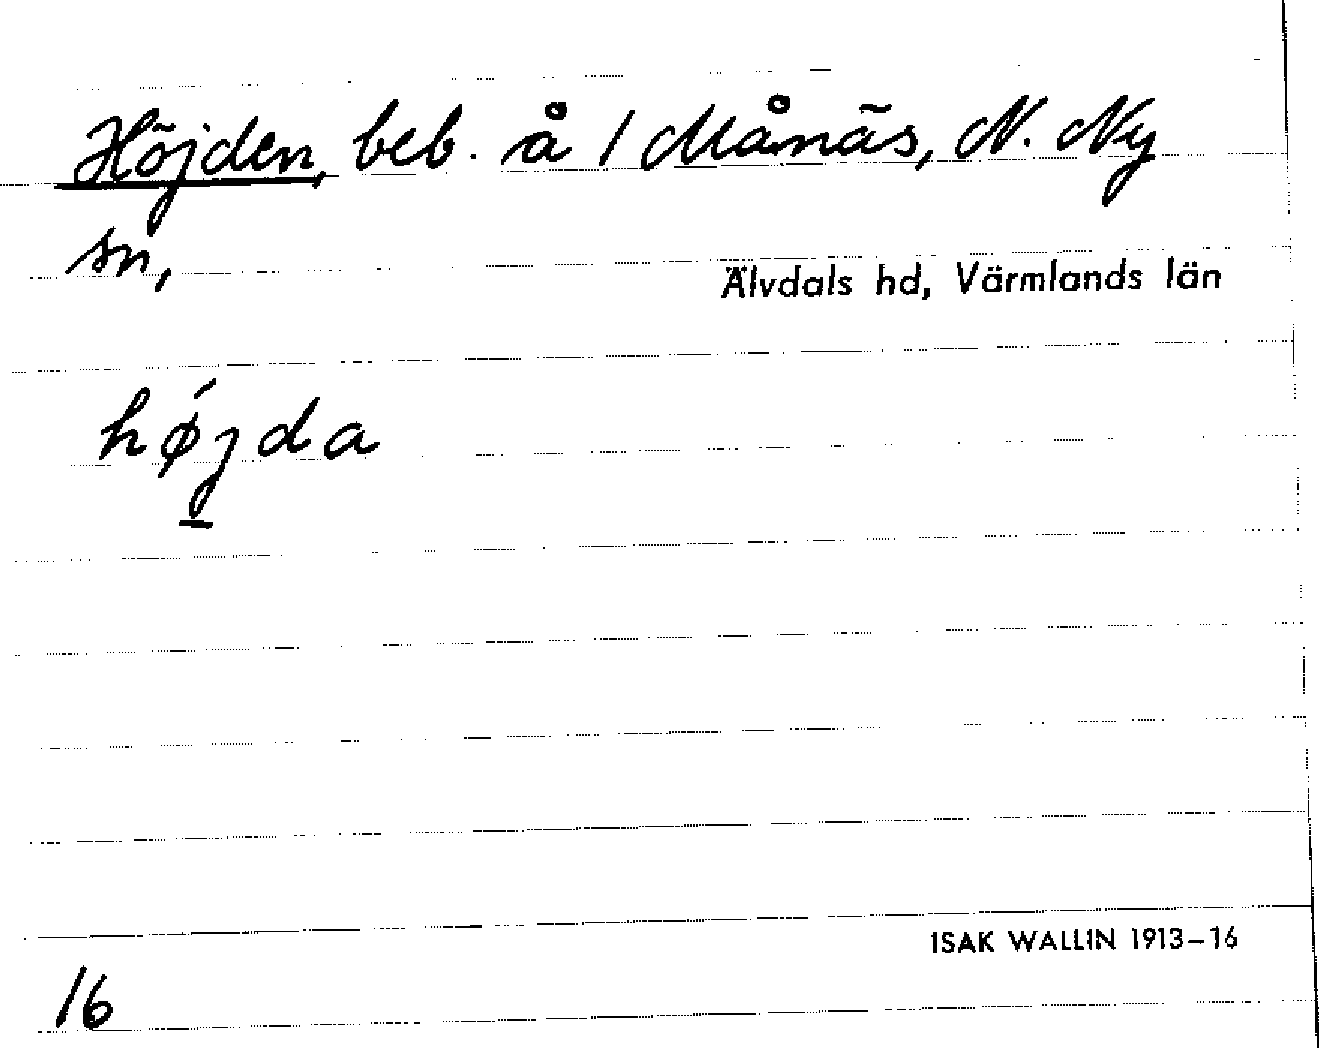 Höjden, beb. å 1 Månäs, N. Ny
sn,
Älvdals hd, Värmlands län
hǿjda
ISAK WALLIN 1913–16
16